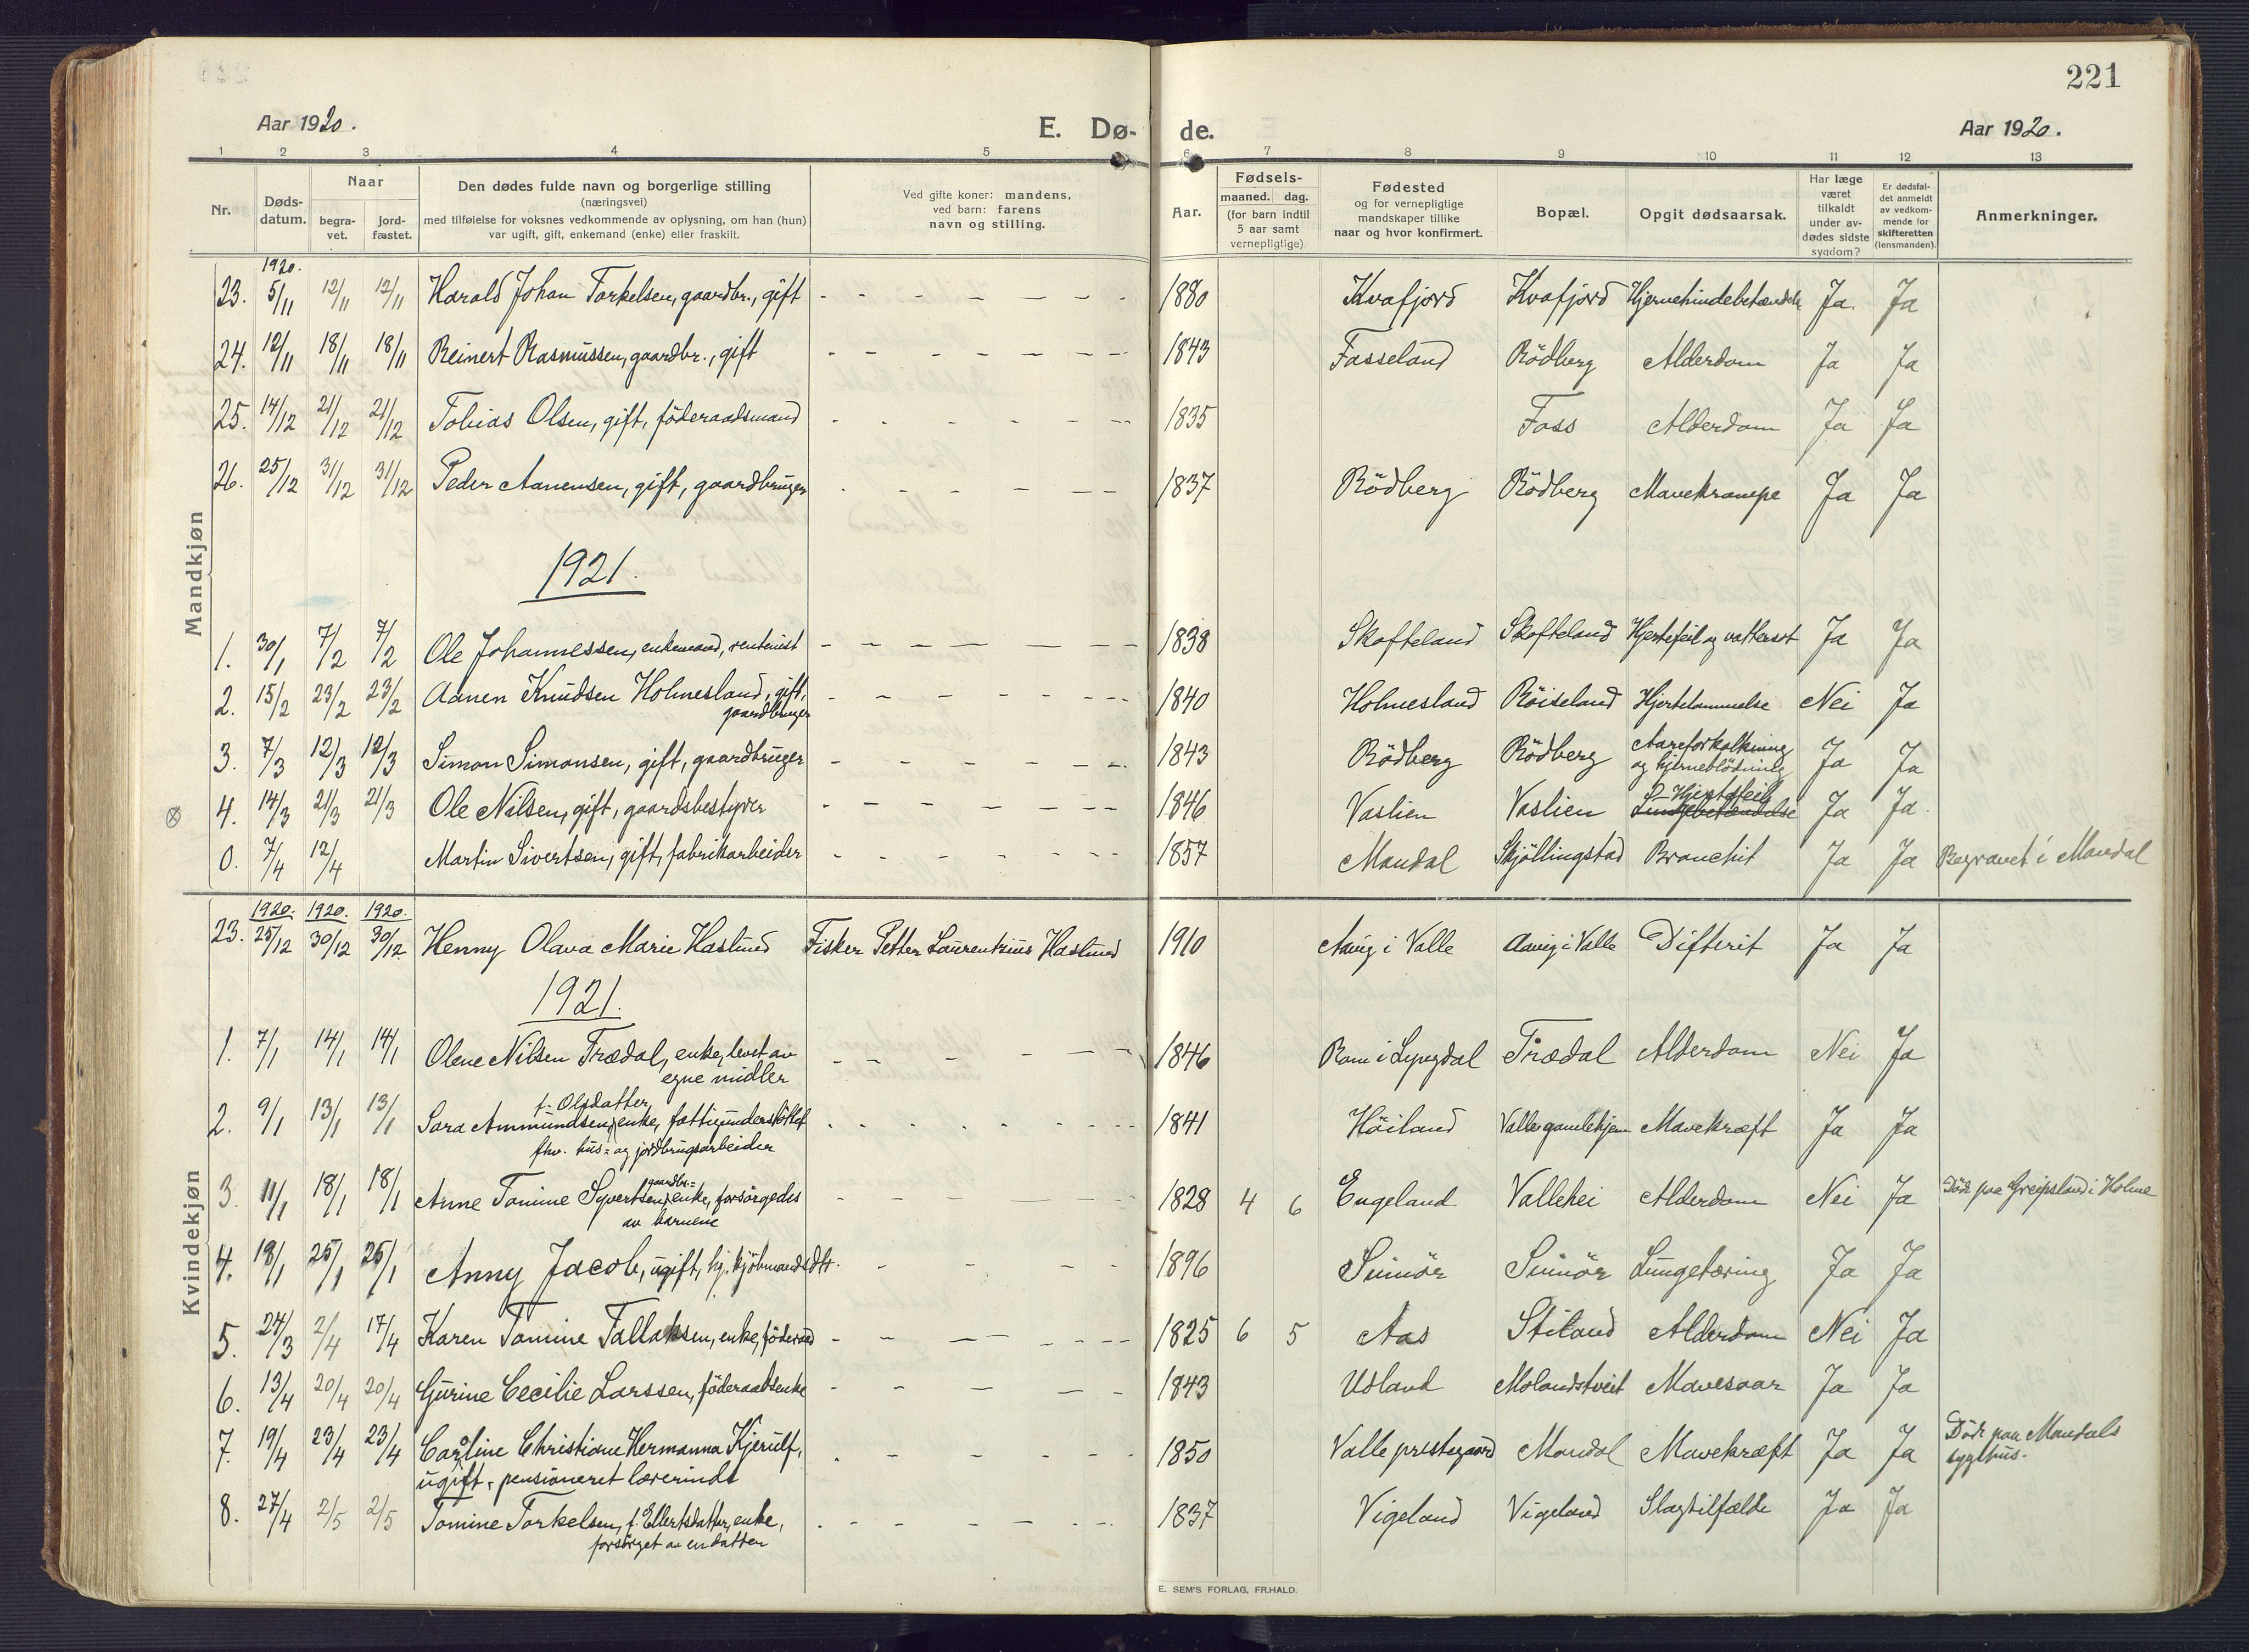 221
Aar 1920. E. Dø- de. Aar 1920.
1 2 3 4 5 6 7 8 9 10 11 12 13
Nr.
Døds-
datum.
Naar
begra-
vet.
jord-
fæstet.
Den dødes fulde navn og borgerlige stilling
(næringsvei)
med tilføielse for voksnes vedkommende av oplysning, om han (hun)
var ugift, gift, enkemand (enke) eller fraskilt.
Ved gifte koner: mandens,
ved barn: farens
navn og stilling.
Aar.
Fødsels-
maaned. dag.
(for barn indtil
5 aar samt
vernepligtige).
Fødested
og for vernepligtige
mandskaper tillike
naar og hvor konfirmert.
Bopæl.
Opgit dødsaarsak.
Har læge
været
tilkaldt
under av-
dødes sidste
sygdom?
Er dødsfal-
det anmeldt
av vedkom-
mende for
skifteretten
(lensmanden).
Anmerkninger.
Mandkjøn
1920.
23. 5/11 12/11 12/11 Harald Johan Torkelsen, gaardbr., gift 1880 Kvafjord Kvafjord Hjernehindebetændelse Ja. Ja
24. 12/11 18/11 18/11 Reinert Rasmussen, gaardbr., gift 1843 Fasseland Rödberg Alderdom Ja Ja
25. 14/12 21/12 21/12 Tobias Olsen, gift, föderaadsmand 1835 Foss Alderdom Ja Ja
26. 25/12 31/12 31/12 Peder Aanensen, gift, gaardbruger 1837 Rödberg Rödberg Mavekrampe Ja Ja
1921.
1. 30/1 7/2 7/2 Ole Johannessen, enkemand, rentenist 1838 Skofteland Skofteland Hjertefeil og vattersot Ja Ja
2. 15/2 23/2 23/2 Aanen Knudsen Holmesland, gift, 1840 Holmesland Röiseland Hjertelammelse Nei Ja
gaardbruger
3. 7/3 12/3 12/3 Simon Simonsen, gift, gaardbruger 1843 Rödberg Rödberg Aareforkalkning Ja Ja
og hjerneblödning
4. 14/3 21/3 21/3 Ole Nilsen, gift, gaardsbestyrer 1846 Vaslien Vaslien Hjertefeil Ja Ja
Lungebetændelse
0. 7/4 12/4 Martin Sivertsen, gift, fabrikarbeider 1857 Mandal Skjöllingstad Bronchit Ja Ja Begravet i Mandal
Kvindekjøn
1920. 1920. 1920.
23. 25/12 30/12 30/12 Henny Olava Marie Haslund Fisker Petter Laurentzius Haslund 1910 Aavig i Valle Aavig i Valle Difterit Ja Ja
1921.
1. 7/1 14/1 14/1 Olene Nilsen Trædal, enke, levet av 1846 Rom i Lyngdal Trædal Alderdom Nei Ja
egne midler
f. Olsdatter
2. 9/1 13/1 13/1 Sara Ammundsen, enke, fattigunderstöttet 1841 Höiland Valle gamlehjem Mavekræft Ja Ja
fhv. hus- og jordbrugsarbeider
gaardbr.-
3. 11/1 18/1 18/1 Anne Tomine Syvertsen, enke, forsörgedes 1828 4 6 Engeland Vallehei Alderdom Nei Ja Död paa Greipsland i Holme
av barnene
4. 18/1 25/1 25/1 Anny Jacob, ugift, hj. kjöbmandsdtr. 1896 Svinör Svinör Lungetæring Ja Ja
5. 24/3 2/4 17/4 Karen Tomine Tallaksen, enke, föderaad 1825 6 5 Aas Stiland Alderdom Nei Ja
6. 13/4 20/4 20/4 Gurine Cecilie Larssen, föderaadsenke 1843 Udland Molandstveit Mavesaar Ja Ja
7. 19/4 23/4 23/4 Caroline Christiane Hermanna Kjerulf, 1850 Valle prestegaard Mandal Mavekræft Ja Ja Död paa Mandals
ugift, pensioneret lærerinde sygehus.
8. 27/4 2/5 2/5 Tomine Torkelsen, f. Ellertsdatter, enke, 1837 Vigeland Vigeland Slagtilfælde Ja Ja
forsörget av en datter
E. SEM'S FORLAG, FR.HALD.